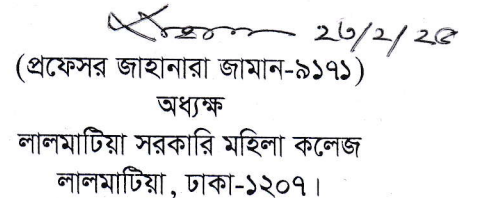 ২৩/২/২৫
(প্রফেসর জাহানারা জামান-৯১৭১)
অধ্যক্ষ
লালমাটিয়া সরকারি মহিলা কলেজ
লালমাটিয়া, ঢাকা-১২০৭।